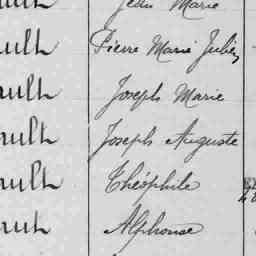 Jean Marie
ault Pierre Marie Julien
ault Joseph Marie
ault Joseph Auguste
ault Théophile
aut Alphonse